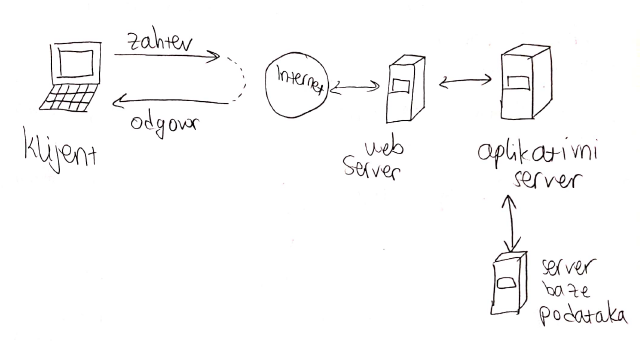 zahtev
odgovor
klijent
Internet
web
server
aplikativni
server
server
baze
podataka